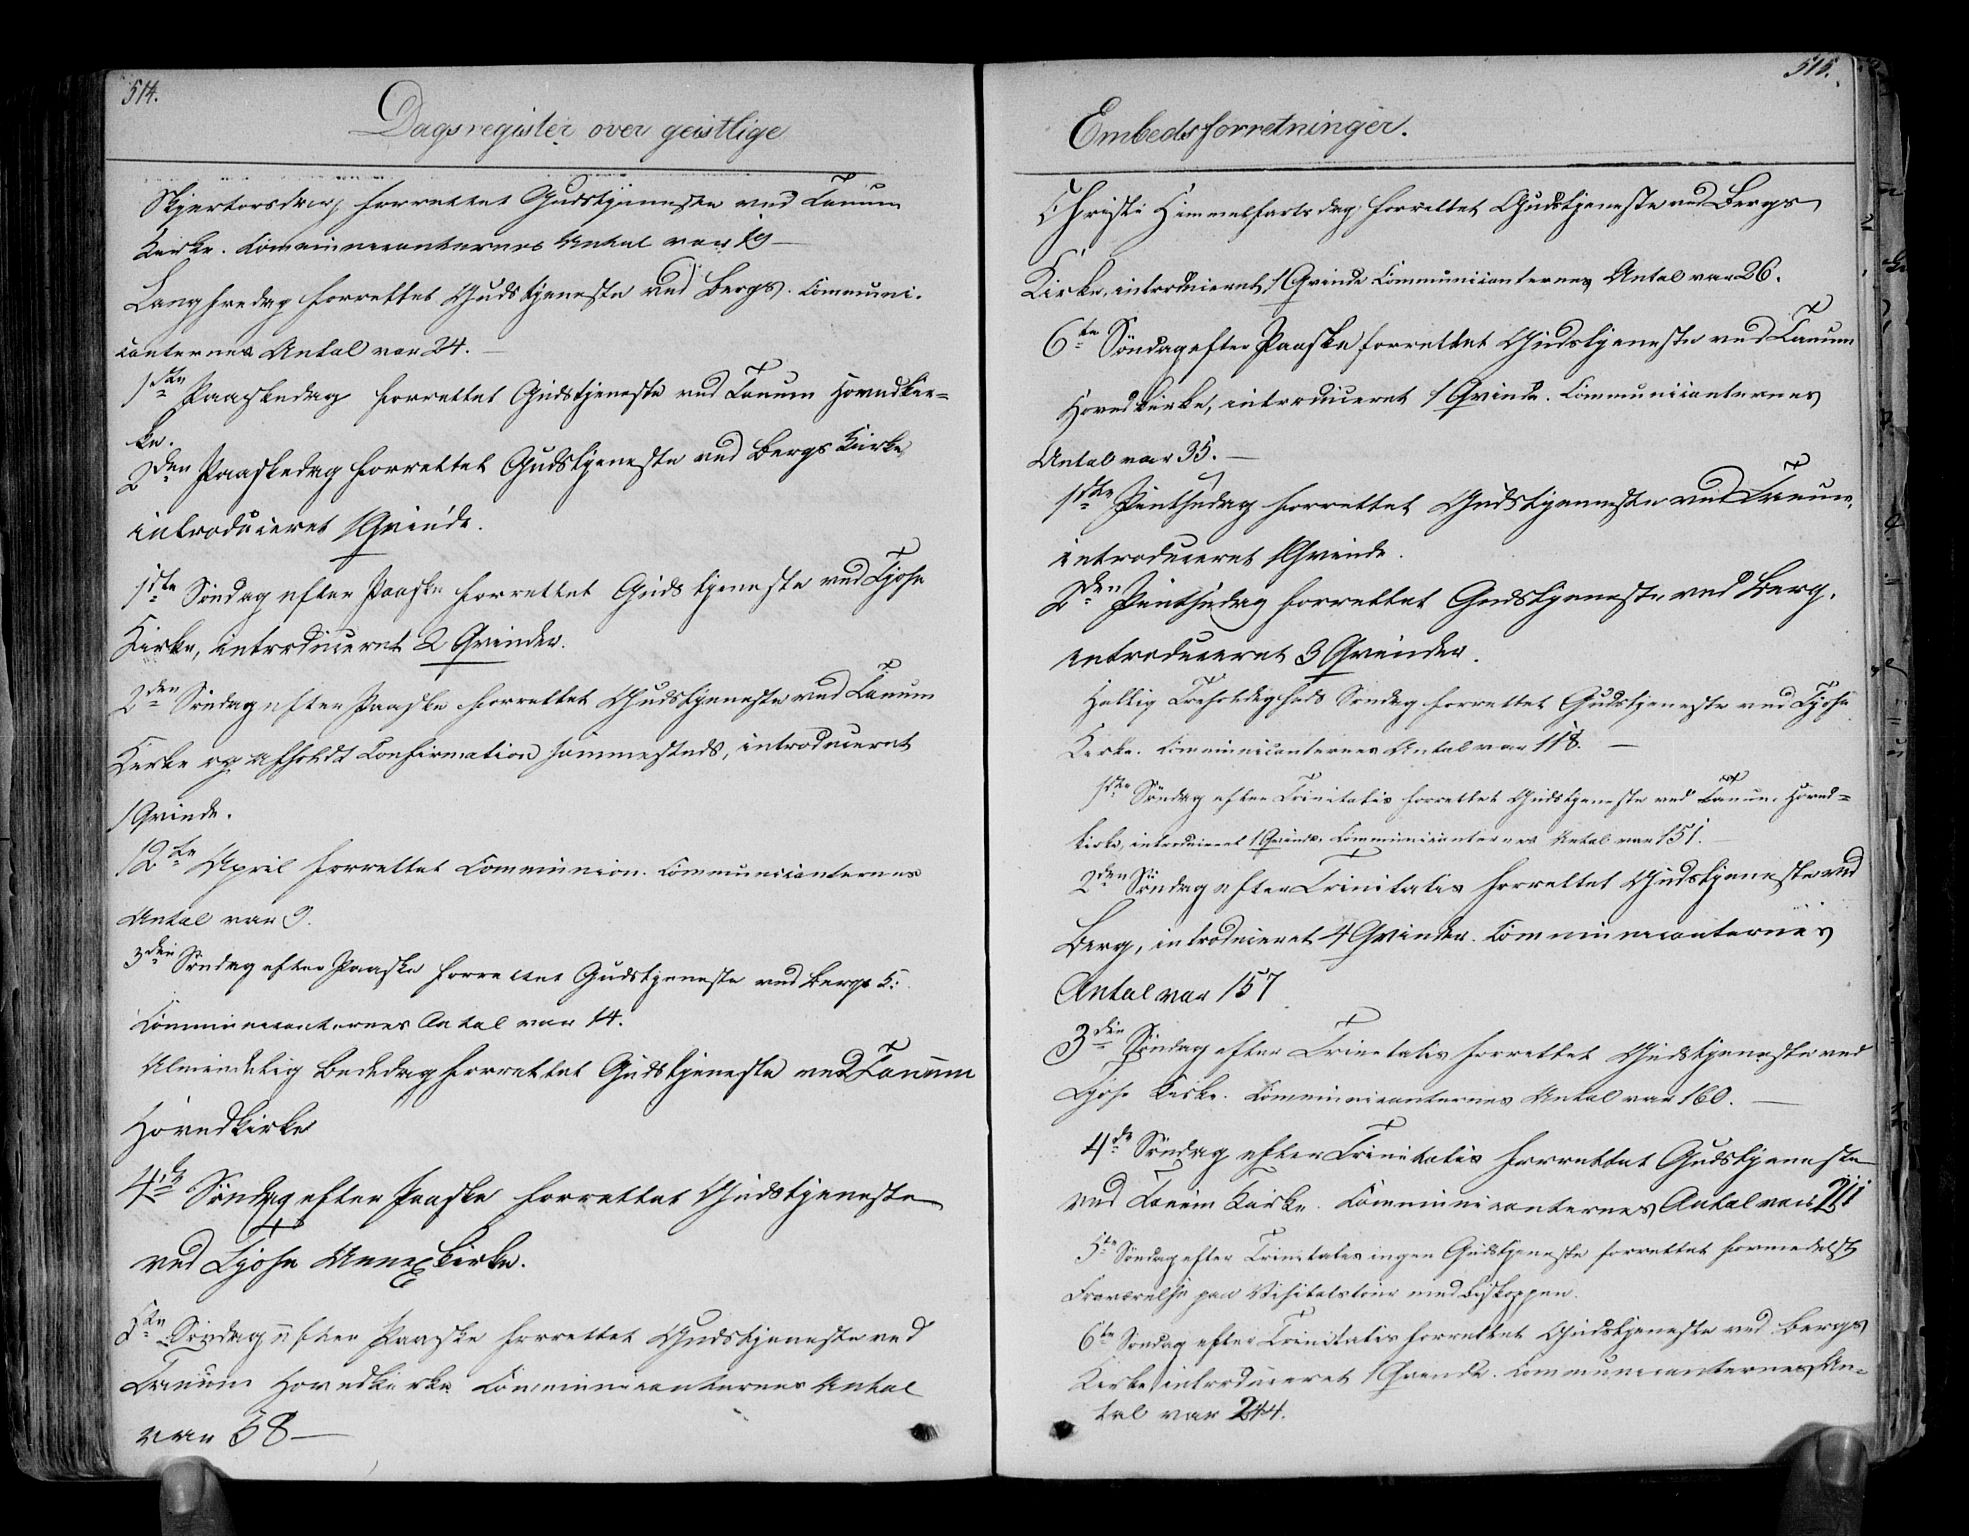 514.
Dagsregister over geistlige
Skjertorsdag forrettet Gudstjeneste ved Tanum
Kirke. Communicanternes Antal var 19 —
Langfredag forrettet Gudstjeneste ved Bergs. Communi-
canternes Antal var 24. —
1ste Paaskedag forrettet Gudstjeneste ved Tanum Hovedkir-
ke.
2den Paaskedag forrettet Gudstjeneste ved Bergs Kirke
introduceret 1 Qvinde.
1ste Søndag efter Paaske forrettet Gudstjeneste ved Tjøse
Kirke, introduceret 2 Qvinder.
2den Søndag efter Paaske forrettet Gudstjeneste ved Tanum
Kirke og afholdt Confirmation sammesteds, introduceret
1 Qvinde.
12te April forrettet Communion. Communicanternes
Antal var 9.
3die Søndag efter Paaske forrettet Gudstjeneste ved Bergs K:
Communicanternes Antal var 14.
Almindelig Bededag forrettet Gudstjeneste ved Tanum
Hovedkirke
4de Søndag efter Paaske forrettet Gudstjeneste
ved Tjøse Annexkirke.
5te Søndag efter Paaske forrettet Gudstjeneste ved
Tanum Hovedkirke Communicanternes Antal
var 38 —
515.
Embedsforretninger.
Christi Himmelfartsdag forrettet Gudstjeneste ved Bergs
Kirke, introduceret 1 Qvinde Communicanternes Antal var 26.
6te Søndag efter Paaske forrettet Gudstjeneste ved Tanum
Hovedkirke, introduceret 1 Qvinde. Communicanternes
Antal var 35. —
1ste Pintsedag forrettet Gudstjeneste ved Tanum,
introduceret 1 Qvinde.
2den Pintsedag forrettet Gudstjeneste ved Berg.
introduceret 3 Qvinder.
Hellig Trefoldigheds Søndag forrettet Gudstjeneste ved Tjøse
Kirke. Communicanternes Antal var 118. —
1ste Søndag efter Trinitatis forrettet Gudstjeneste ved Tanum Hoved=
kirke, introduceret 1 Qvinde, Communicanternes Antal var 151. —
2den Søndag efter Trinitatis forrettet Gudstjeneste ved
Berg, introduceret 4 Qvinder. Communicanternes
Antal var 157
3die Søndag efter Trinitatis forrettet Gudstjeneste ved
Tjøse Kirke. Communicanternes Antal var 160. —
4de Søndag efter Trinitatis forrettet Gudstjeneste
ved Tanum Kirke. Communicanternes Antal var 211
5te Søndag efter Trinitatis ingen Gudstjeneste forrettet formedelst
Fraværelse paa Visitatstour med Biskoppen.
6te Søndag efter Trinitatis forrettet Gudstjeneste ved Bergs
Kirke, introduceret 1 Qvinde. Communicanternes An-
tal var 244.